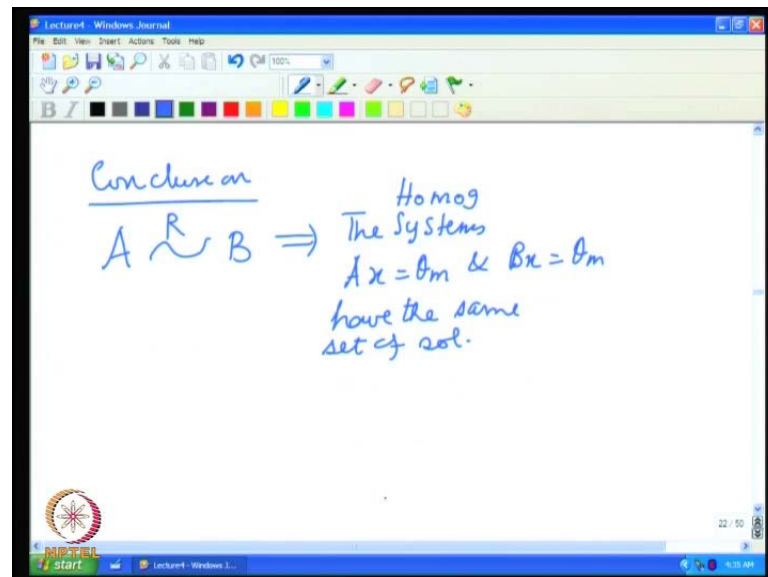 Lecture4 - Windows Journal
File Edit View Insert Actions Tools Help
100%
B I
Conclusion
Homog
A R~ B ⇒ The Systems
Ax = θm & Bx = θm
have the same
set of sol.
22 / 50
NPTEL
start Lecture4 - Windows J... 4:35 AM